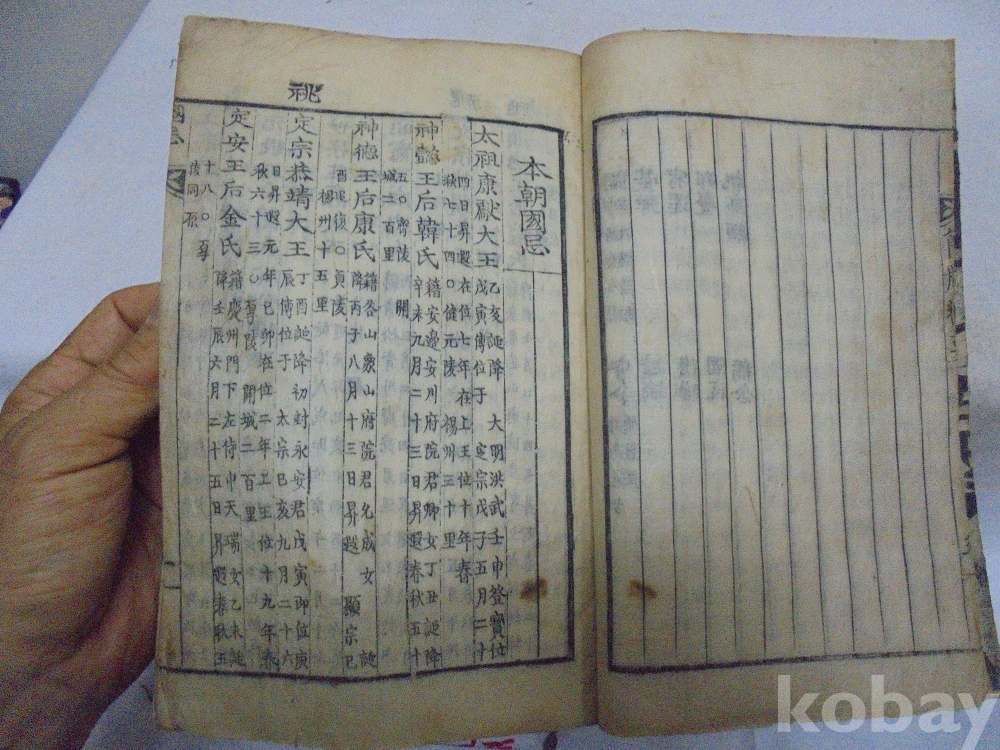 本朝國忌
太祖康獻大王
乙亥誕降 大明洪武壬申登寶位
戊寅傳位于 定宗戊子五月二十
四日昇遐在位七年在上王位十年春
秋七十四〇健元陵楊州三十里
神懿王后韓氏
籍安邊安川府院君卿女丁丑誕降
辛未九月二十三日昇遐春秋五十
五〇齊陵 開
城二百里
神德王后康氏
籍谷山象山府院君允成女 誕
降丙子八月十三日昇遐 顯宗己
酉追復〇貞陵
楊州十五里
祧
定宗恭靖大王
丁酉誕降初封永安君戊寅卽位庚
辰傳位于 太宗己亥九月二十六
日昇遐元年己卯在位二年上王位十九年春
秋六十三〇厚陵開城二百里
定安王后金氏
籍慶州門下左侍中天瑞女乙未誕
降壬辰六月二十五日昇遐春秋五
十八〇
陵同原
國忌
一
kobay